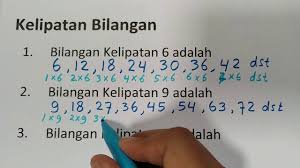 Kelipatan Bilangan
1. Bilangan Kelipatan 6 adalah
6, 12, 18, 24, 30, 36, 42 dst
1x6 2x6 3x6 4x6 5x6 6x6 7x6
2. Bilangan Kelipatan 9 adalah
9, 18, 27, 36, 45, 54, 63, 72 dst
1x9 2x9 3x
3. Bilan adalah